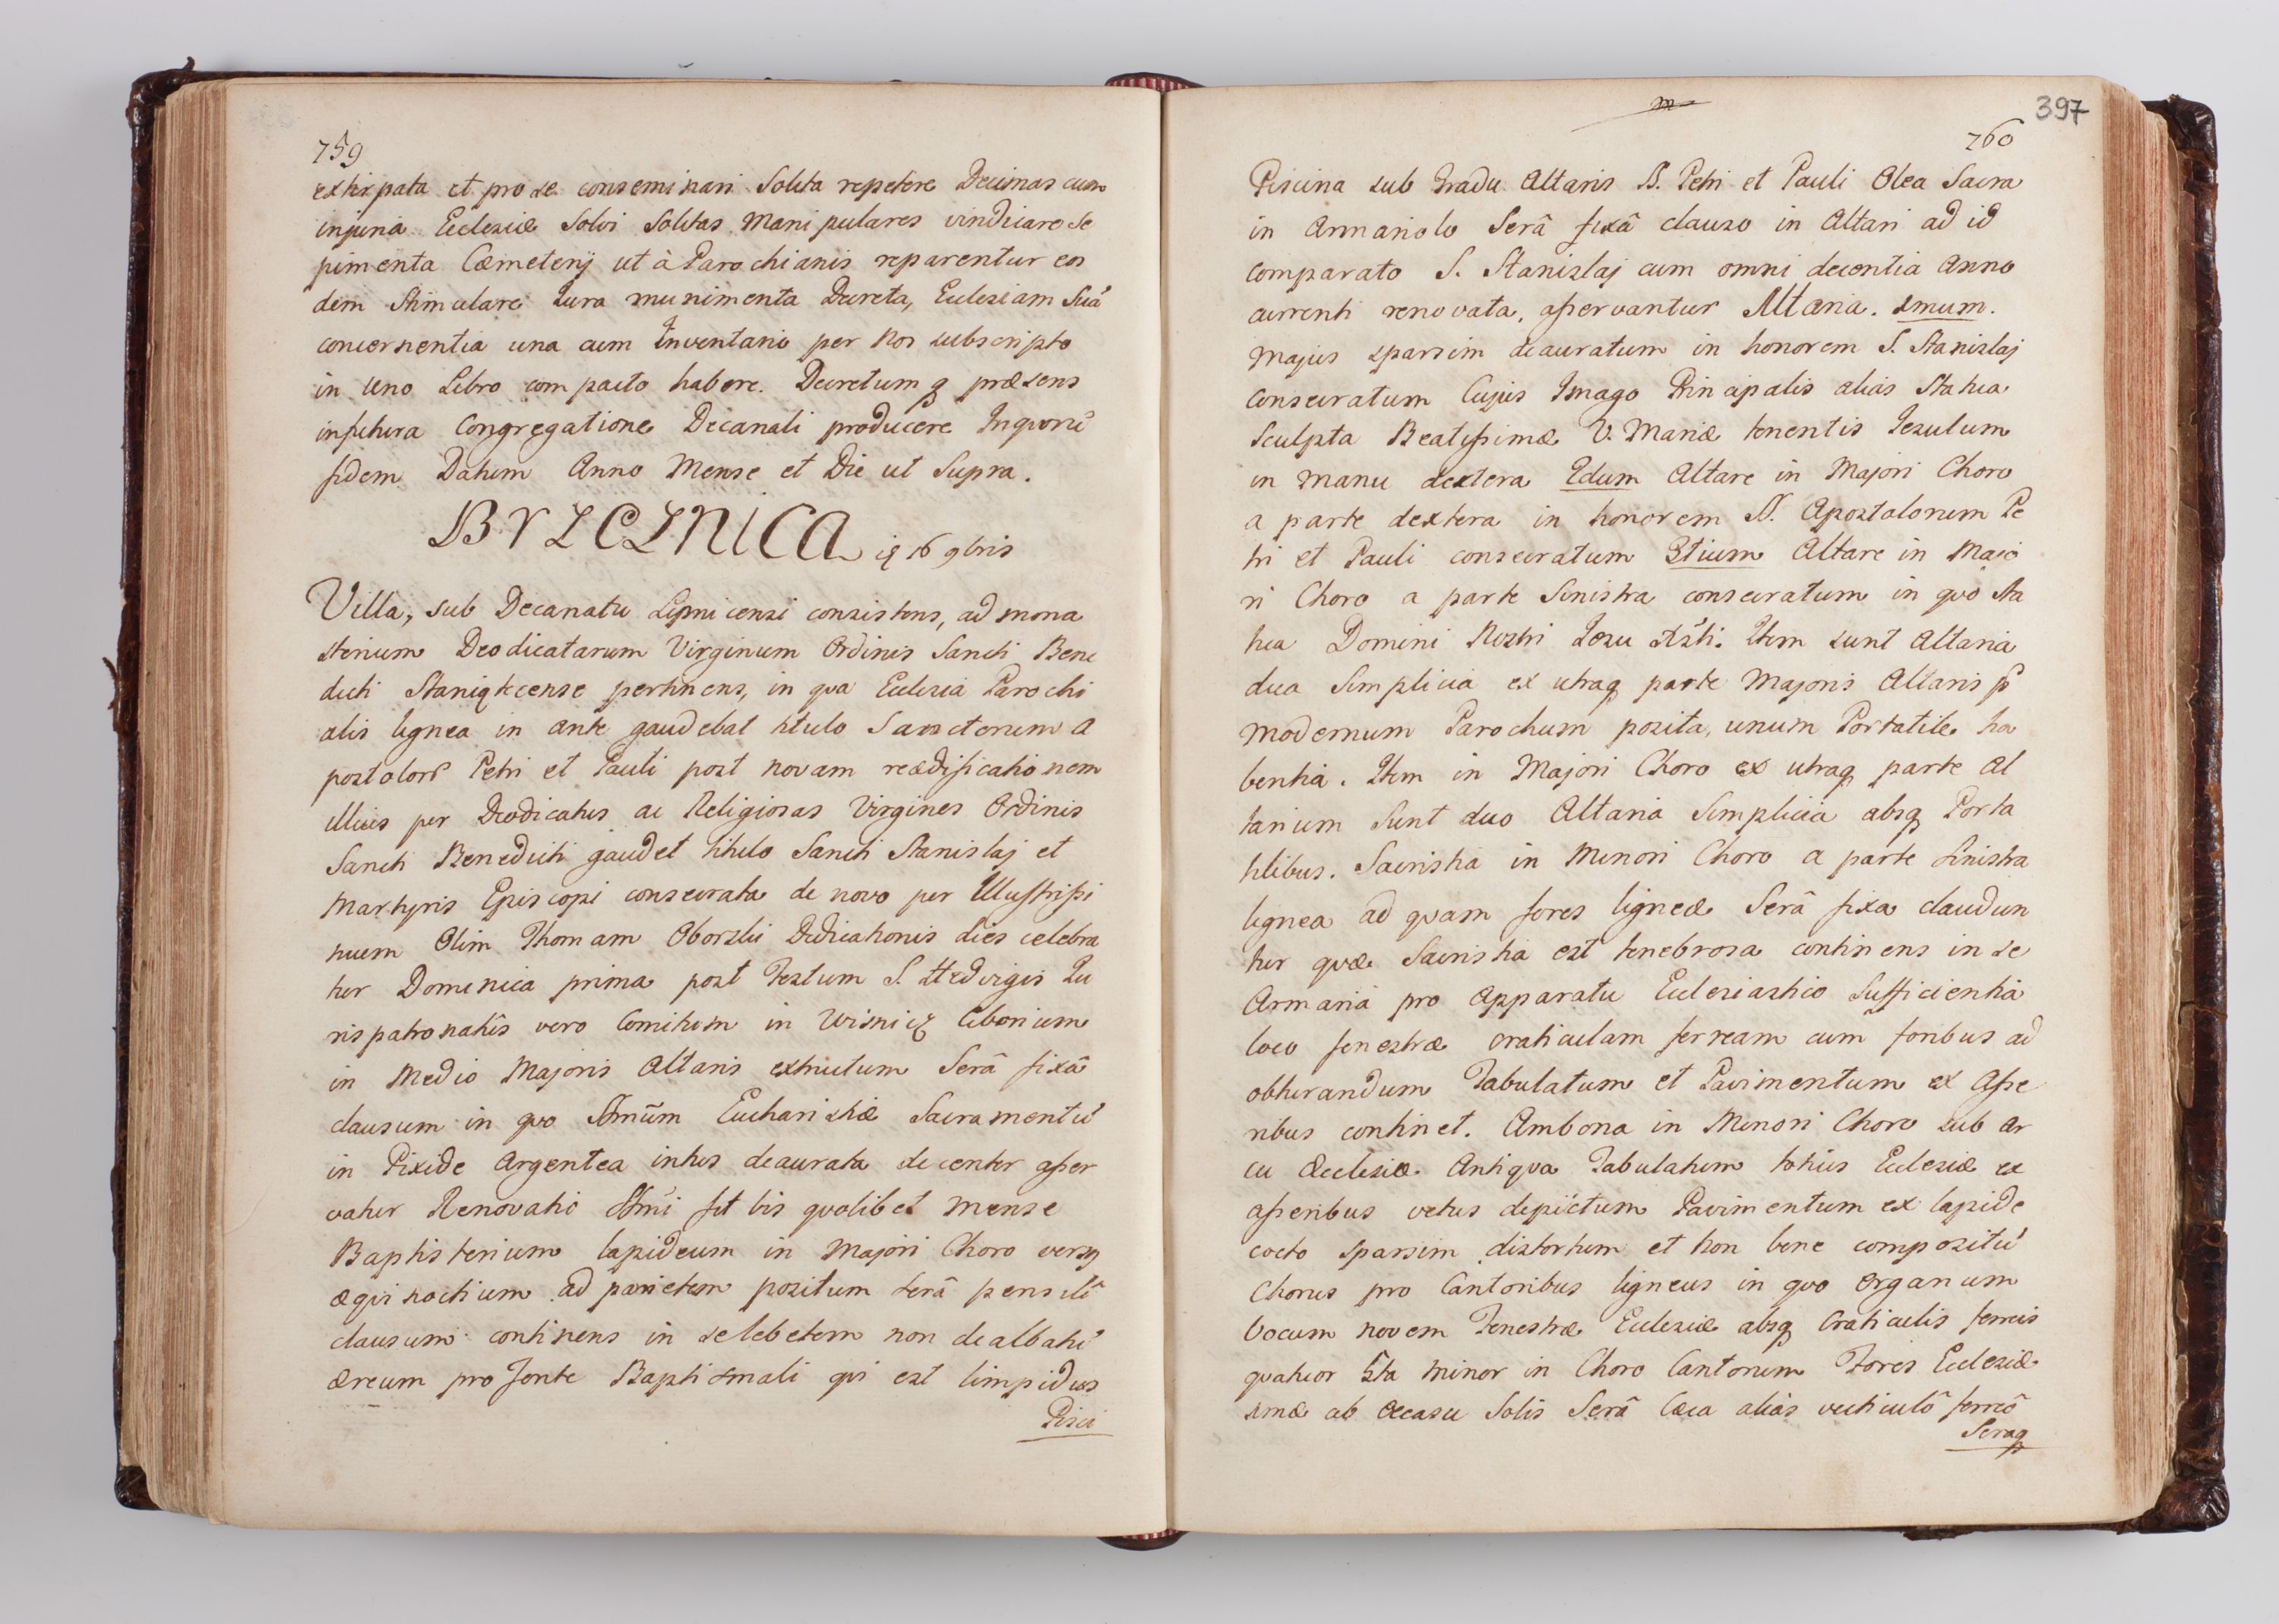 759
extirpata et pro se conseminari Solita repetere Decimas cum
injuria Ecclesiæ Solvi Solitas Manipulares vindicare Se
pimenta Cæmeterij ut à Parochianis reparentur eos
dem Stimulare Iura munimenta Decreta, Ecclesiam Suã
concernentia una cum Inventario per Nos subscripto
in uno Libro compacto habere. Decretumq præsens
in futura Congregatione Decanali producere In quorũ
fidem Datum Anno Mense et Die ut Supra.
BRZEZNICA 16 9bris
Villa, sub Decanatu Lipnicensi consistens, ad mona
sterium Deo dicatarum Virginum Ordinis Sancti Bene
dicti Staniątecense pertinens, in qva Ecclesia Parochi
alis lignea in ante gaudebat titulo Sanctorum A
postolorũ Petri et Pauli post novam reædificationem
illius per Deo dicatas ac Religiosas Virgines Ordinis
Sancti Benedicti gaudet titulo Sancti Stanislaj et
Martyris Episcopi consecrata de novo per Illustrissi
mum Olim Thomam Oborski Dedicationis dies celebra
tur Dominica prima post Festum S. Hedvigis Iu
ris patronatûs vero Comitum in Wisnicz Ciborium
in Medio Majoris Altaris extructum Serâ fixâ
clausum in qvo SSmũm Eucharistiæ Sacramentũ
in Pixide Argentea intus deaurata decenter asser
vatur Renovatio SSmi fit bis qvolibet Mense
Baptisterium lapideum in Majori Choro versq
æqvinoctium ad parietem positum serâ pensilî
clausum continens in se lebetem non dealbatũ
æreum pro fonte Baptismali qvi est limpidus
Pisci
397
760
Piscina sub Gradu Altaris SS. Petri et Pauli Olea Sacra
in Armariolo Serâ fixâ clauso in Altari ad id
comparato S. Stanislaj cum omni decentia Anno
currenti renovata, asservantur Altaria. 1mum.
Majus sparsim deauratum in honorem S. Stanislaj
Consecratum Cujus Imago Principalis alias Statua
Sculpta Beatissimæ V. Mariæ tenentis Iesulum
in manu dextera 2dum Altare in Majori Choro
a parte dextera in honorem SS. Apostolorum Pe
tri et Pauli consecratum 3tium Altare in Majo
ri Choro a parte Sinistra consecratum in qvo Sta
tua Domini Nostri Iesu Xsti. Item sunt Altaria
dua Simplicia ex utraq parte Majoris Altaris p
modernum Parochum posita, unum Portatile ha
bentia. Item in Majori Choro ex utraq parte Al
tarium Sunt duo Altaria Simplicia absq Porta
tilibus. Sacristia in Minori Choro a parte Sinistra
lignea ad qvam fores ligneæ Serâ fixa claudun
tur qvæ Sacristia est tenebrosa continens in se
Armaria pro Apparatu Ecclesiastico Sufficientia
loco fenestræ craticulam ferream cum foribus ad
obturandum Tabulatum et Pavimentum ex Asse
ribus continet. Ambona in Minori Choro sub Ar
cu Æcclesiæ Antiqva Tabulatum totius Ecclesiæ ex
asseribus vetus depictum Pavimentum ex lapide
cocto sparsim distortum et non bene compositũ
Chorus pro Cantoribus ligneus in qvo Organum
Vocum novem Fenestræ Ecclesiæ absq Craticulis ferreis
qvatuor 5ta Minor in Choro Cantorum Fores Ecclesiæ
1mæ ab Occasu Solis Serâ Cæca alias vecticulô ferreô
Seraq